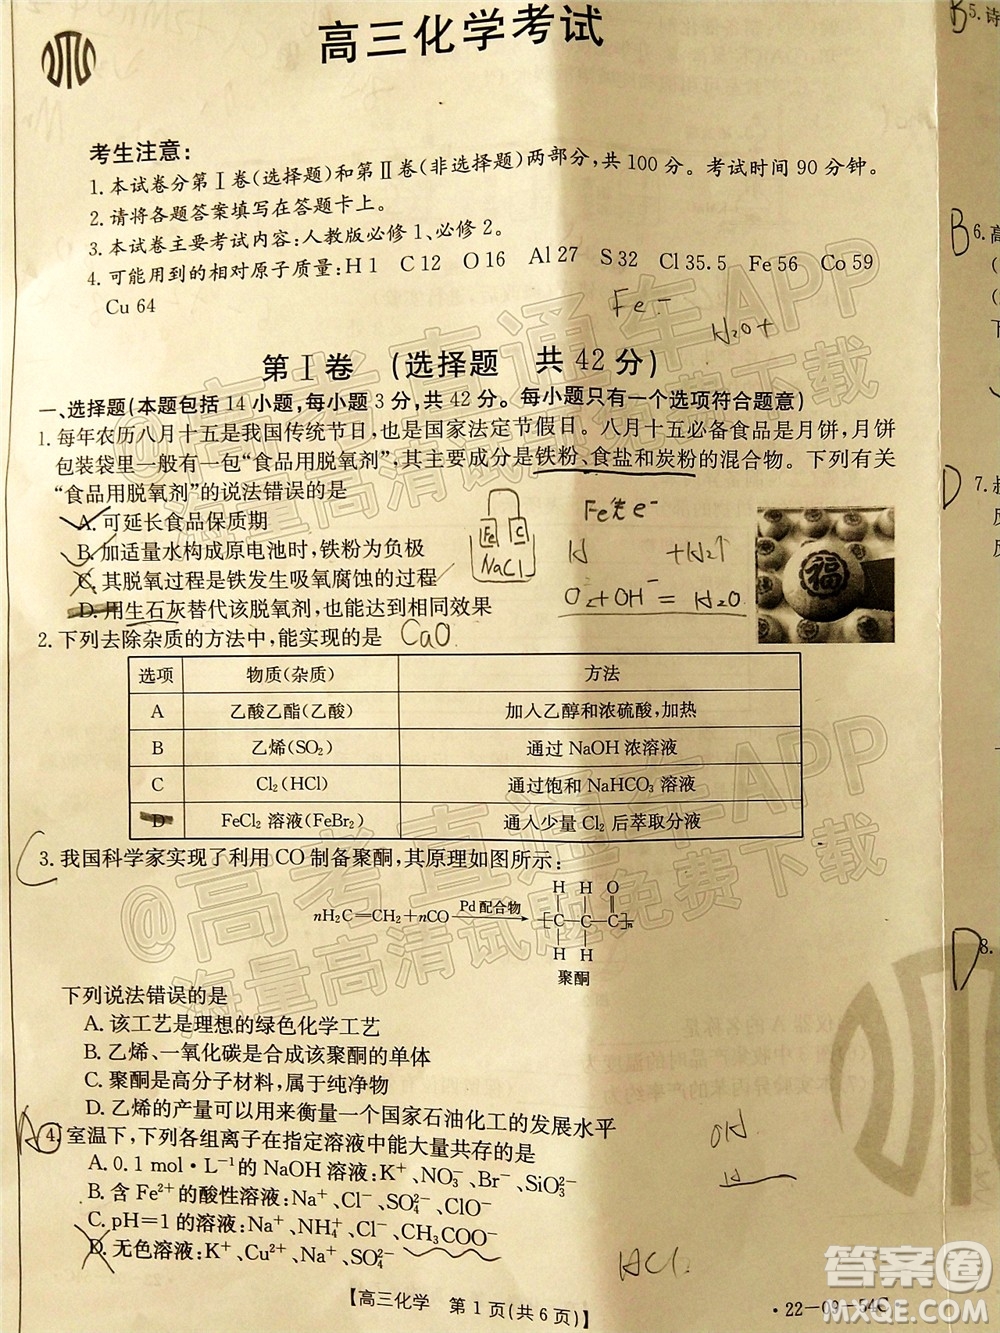 高三化学考试
考生注意:
1.本试卷分第Ⅰ卷(选择题)和第Ⅱ卷(非选择题)两部分,共100分。考试时间90分钟。
2.请将各题答案填写在答题卡上。
3.本试卷主要考试内容:人教版必修1、必修2。
4.可能用到的相对原子质量:H 1 C 12 O 16 Al 27 S 32 Cl 35.5 Fe 56 Co 59
Cu 64
Fe-
H2O+
第Ⅰ卷 (选择题 共42分)
一、选择题(本题包括14小题,每小题3分,共42分。每小题只有一个选项符合题意)
1.每年农历八月十五是我国传统节日,也是国家法定节假日。八月十五必备食品是月饼,月饼
包装袋里一般有一包“食品用脱氧剂”,其主要成分是铁粉、食盐和炭粉的混合物。下列有关
“食品用脱氧剂”的说法错误的是
A.可延长食品保质期
B.加适量水构成原电池时,铁粉为负极
C.其脱氧过程是铁发生吸氧腐蚀的过程
D.用生石灰替代该脱氧剂,也能达到相同效果
Fe C
NaCl
Fe失e-
H +H2↑
O2+OH-=H2O
福
2.下列去除杂质的方法中,能实现的是
CaO
选项 物质(杂质) 方法
A 乙酸乙酯(乙酸) 加入乙醇和浓硫酸,加热
B 乙烯(SO2) 通过NaOH浓溶液
C Cl2(HCl) 通过饱和NaHCO3溶液
D FeCl2溶液(FeBr2) 通入少量Cl2后萃取分液
C
3.我国科学家实现了利用CO制备聚酮,其原理如图所示:
H H O
nH2C=CH2+nCO Pd配合物 [C—C—C]n
H H
聚酮
下列说法错误的是
A.该工艺是理想的绿色化学工艺
B.乙烯、一氧化碳是合成该聚酮的单体
C.聚酮是高分子材料,属于纯净物
D.乙烯的产量可以用来衡量一个国家石油化工的发展水平
A
4.室温下,下列各组离子在指定溶液中能大量共存的是
A.0.1 mol·L−1的NaOH溶液:K+、NO3−、Br−、SiO3²−
B.含Fe2+的酸性溶液:Na+、Cl−、SO4²−、ClO−
C.pH=1的溶液:Na+、NH4+、Cl−、CH3COO−
D.无色溶液:K+、Cu2+、Na+、SO4²−
OH
H
【高三化学 第1页(共6页)】
·22—09—54C
B 5.诗
B 6.高
D 7.
D 8.
@高考直通车APP
海量高清试题免费下载
@高考直通车APP
海量高清试题免费下载
答案圈
MXQE.COM